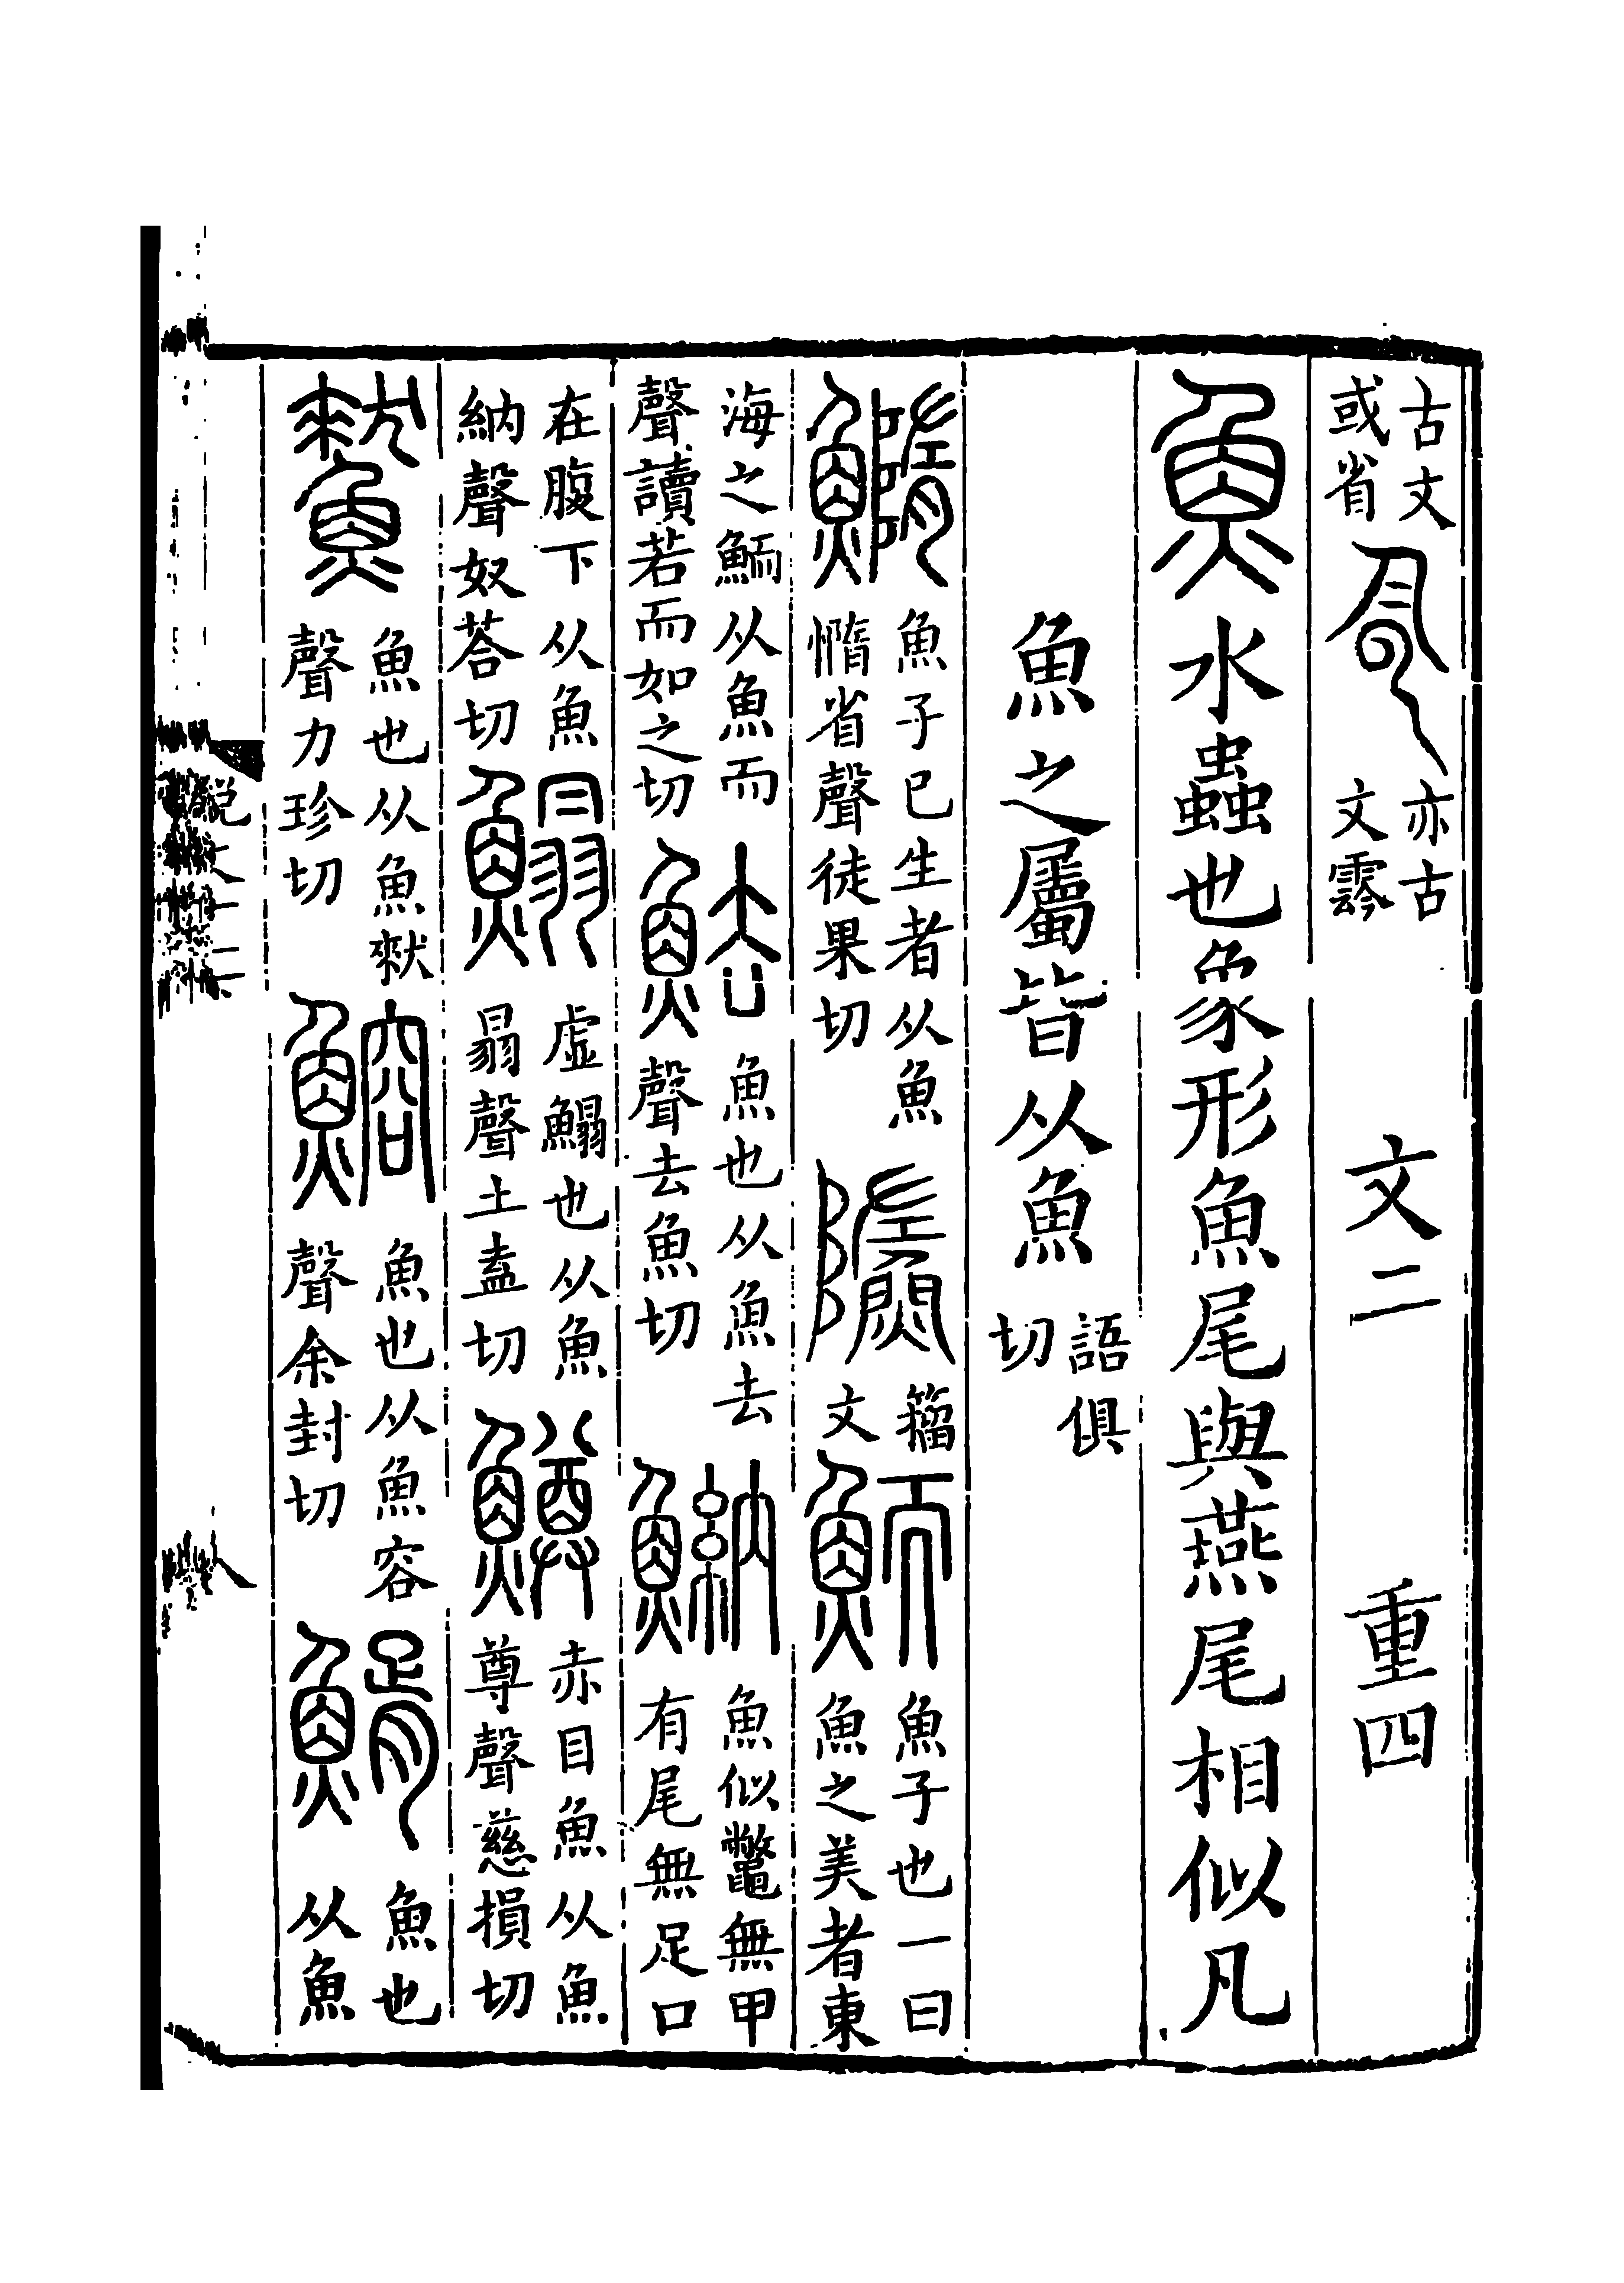 古文或省 亦古文霒 文二 重四
魚 水蟲也象形魚尾與燕尾相似凡
魚之屬皆从魚 語俱切
魚子已生者从魚憜省聲徒果切 籒文 鮞 魚子也一曰魚之美者東
海之鮞从魚而聲讀若而如之切 魼 魚也从魚去聲去魚切 魚似鼈無甲有尾無足口
在腹下从魚納聲奴荅切 鰨 虛鰨也从魚㬼聲土盍切 鱒 赤目魚从魚尊聲慈損切
魚也从魚㷠聲力珍切 鰫 魚也从魚容聲余封切 䱬 魚也从魚